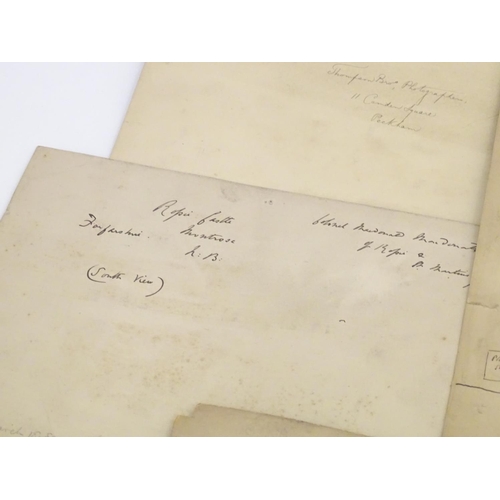 Thompson Bros, Photographers
11 Camden Grove
Peckham
Rossie Castle
Forfarshire. Montrose
N. B.
(South View)
Colonel Macdonald Macdonald
of Rossie &
St Martins